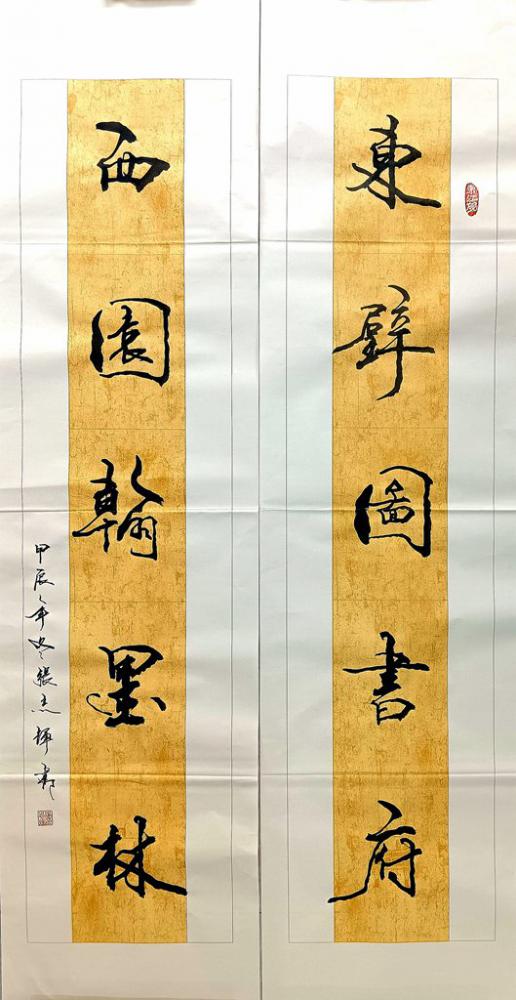 東壁圖書府
西園翰墨林
甲辰年冬張杰輝書